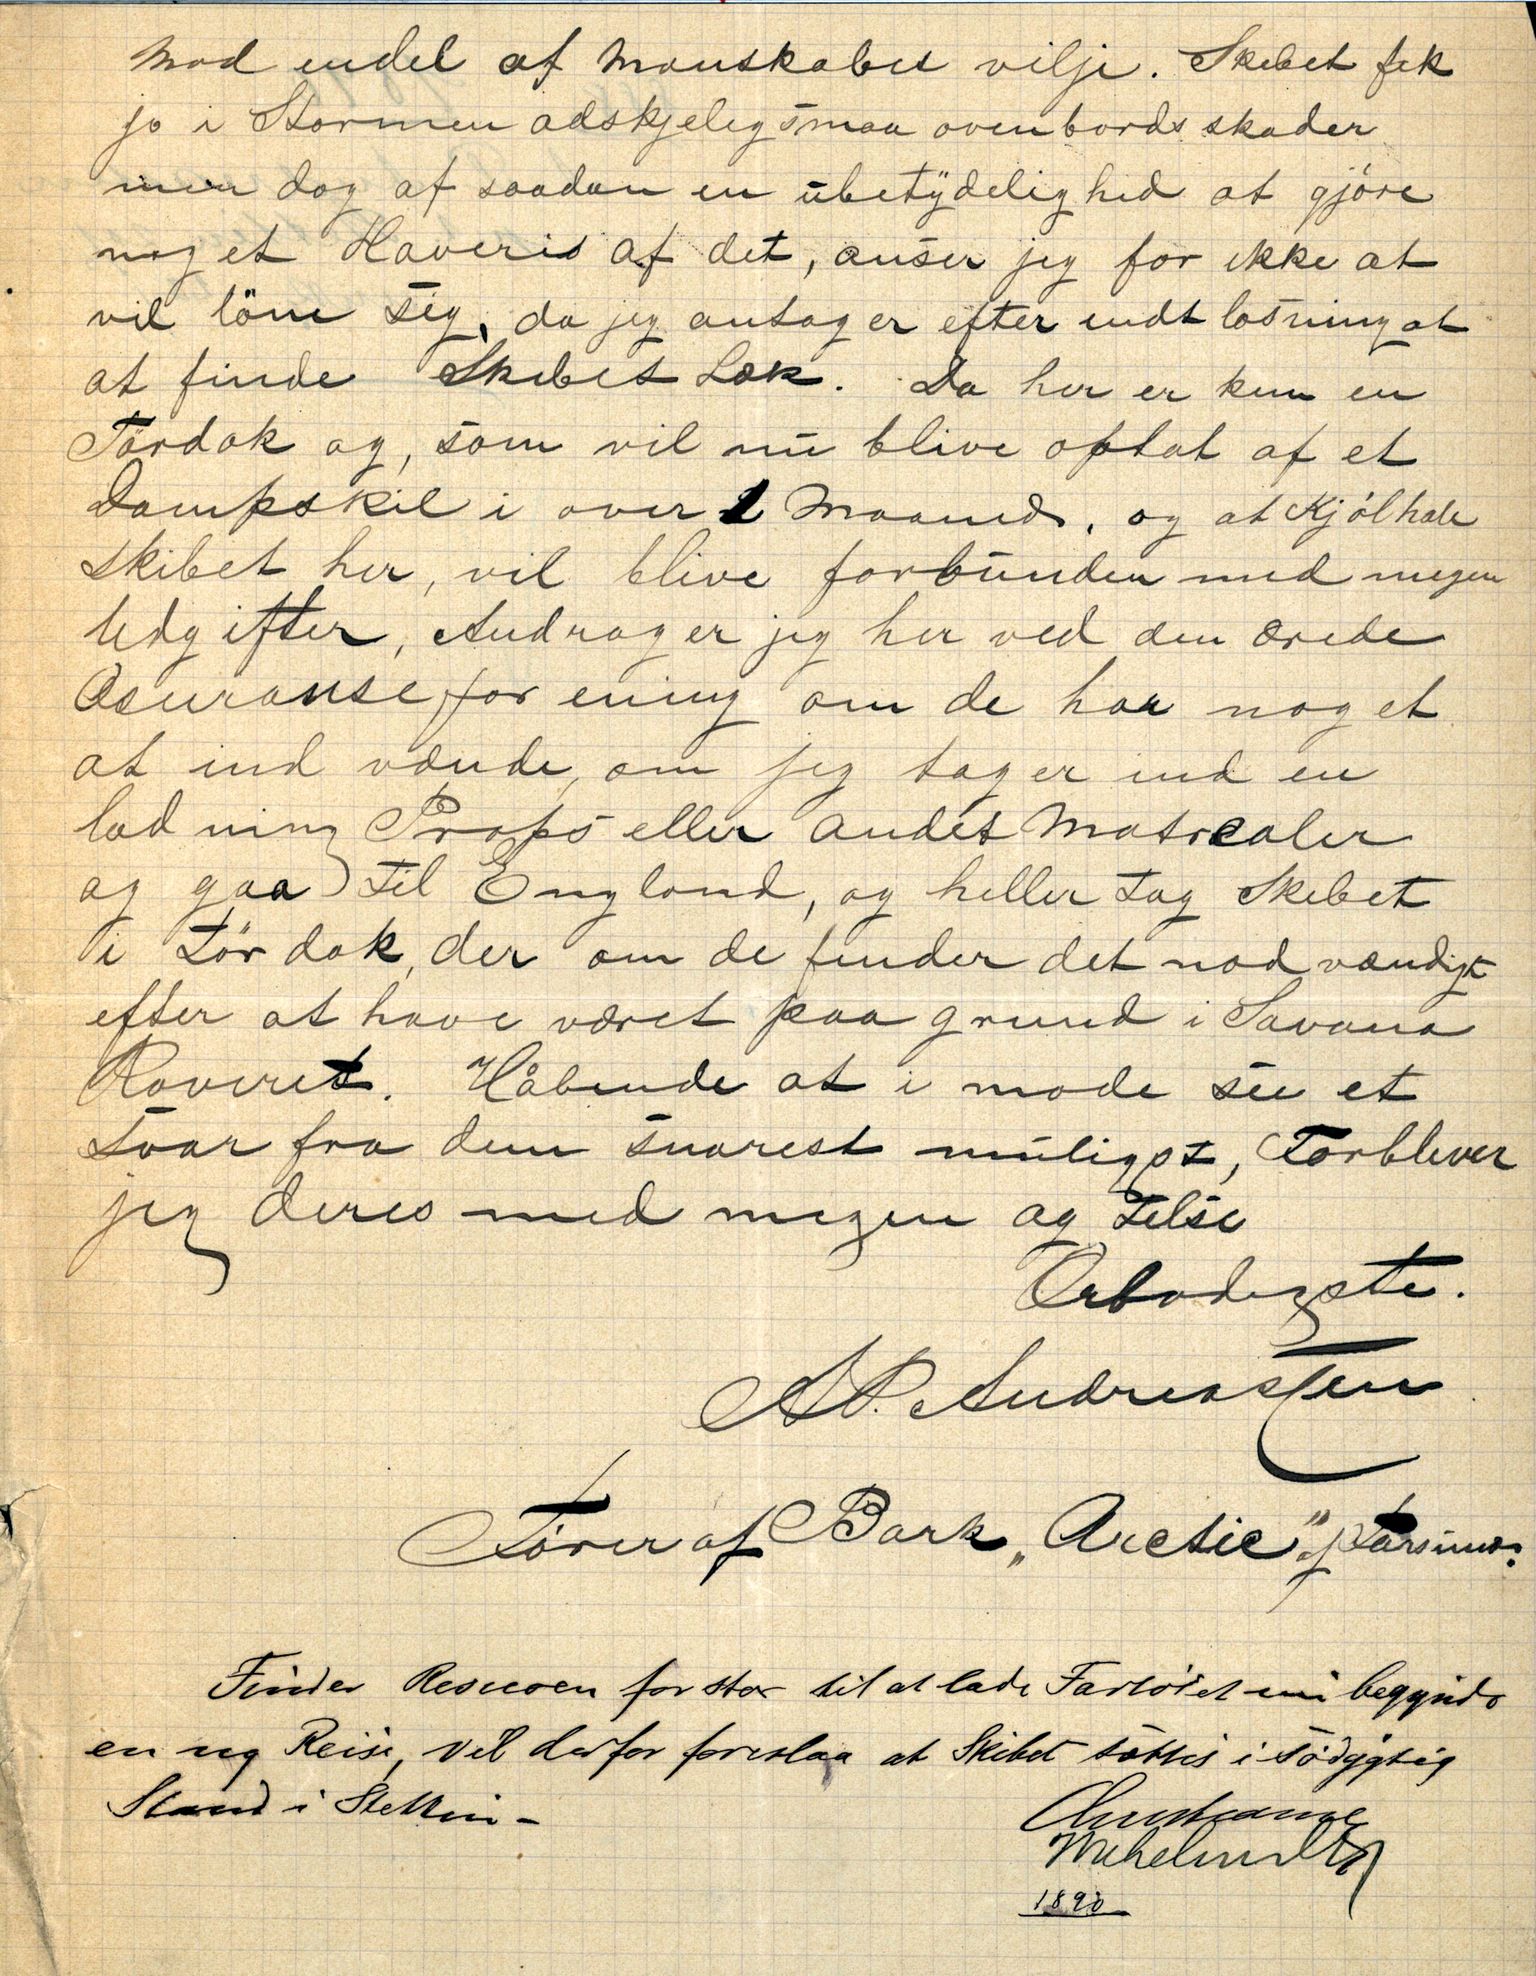 mod endel af Manskabet vilje. Skibet fik
jo i Stormen adskjelig smaa ovenbords skader
men dog af saadan en ubetydelighed at gjøre
noget Haveris af det, anser jeg for ikke at
vil löne sig, da jeg antager efter endt losning at
at finde Skibets Læk. Da her er kun en
Tørdok og, som vil nu blive optat af et
Dampskib i over 1 Maaned, og at Kjølhale
skibet her, vil blive forbunden med megen
Udgifter, Andrager jeg her ved den ærede
Asuranseforening om de har noget
at ind vænde, om jeg tager ind en
ladning Props eller andet Matrealer
og gaa til England, og heller tag Skibet
i tør dok, der om de finder det nødvændigt
efter at have været paa grund i Savana
Raveret. Håbende at i møde see et
svar fra dem snarest muligst, Forbliver
jeg deres med megen ag telse
Ærbødigste.
A P. Andreassen
Fører af Bark „Arctic" af
Finder Resicoen for stor til at lade Fartöiet nu begynde
en ny Reise, vil derfor foreslaa at Skibet sættes i södygtig
Stand i Stettin –
1890